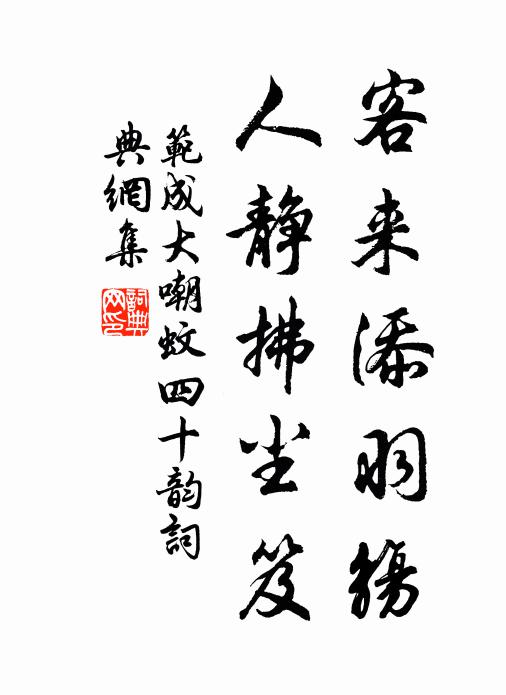 客来添羽觞
人静拂尘笈
範成大嘲蚊四十韵詞
典網集
詞典
网印